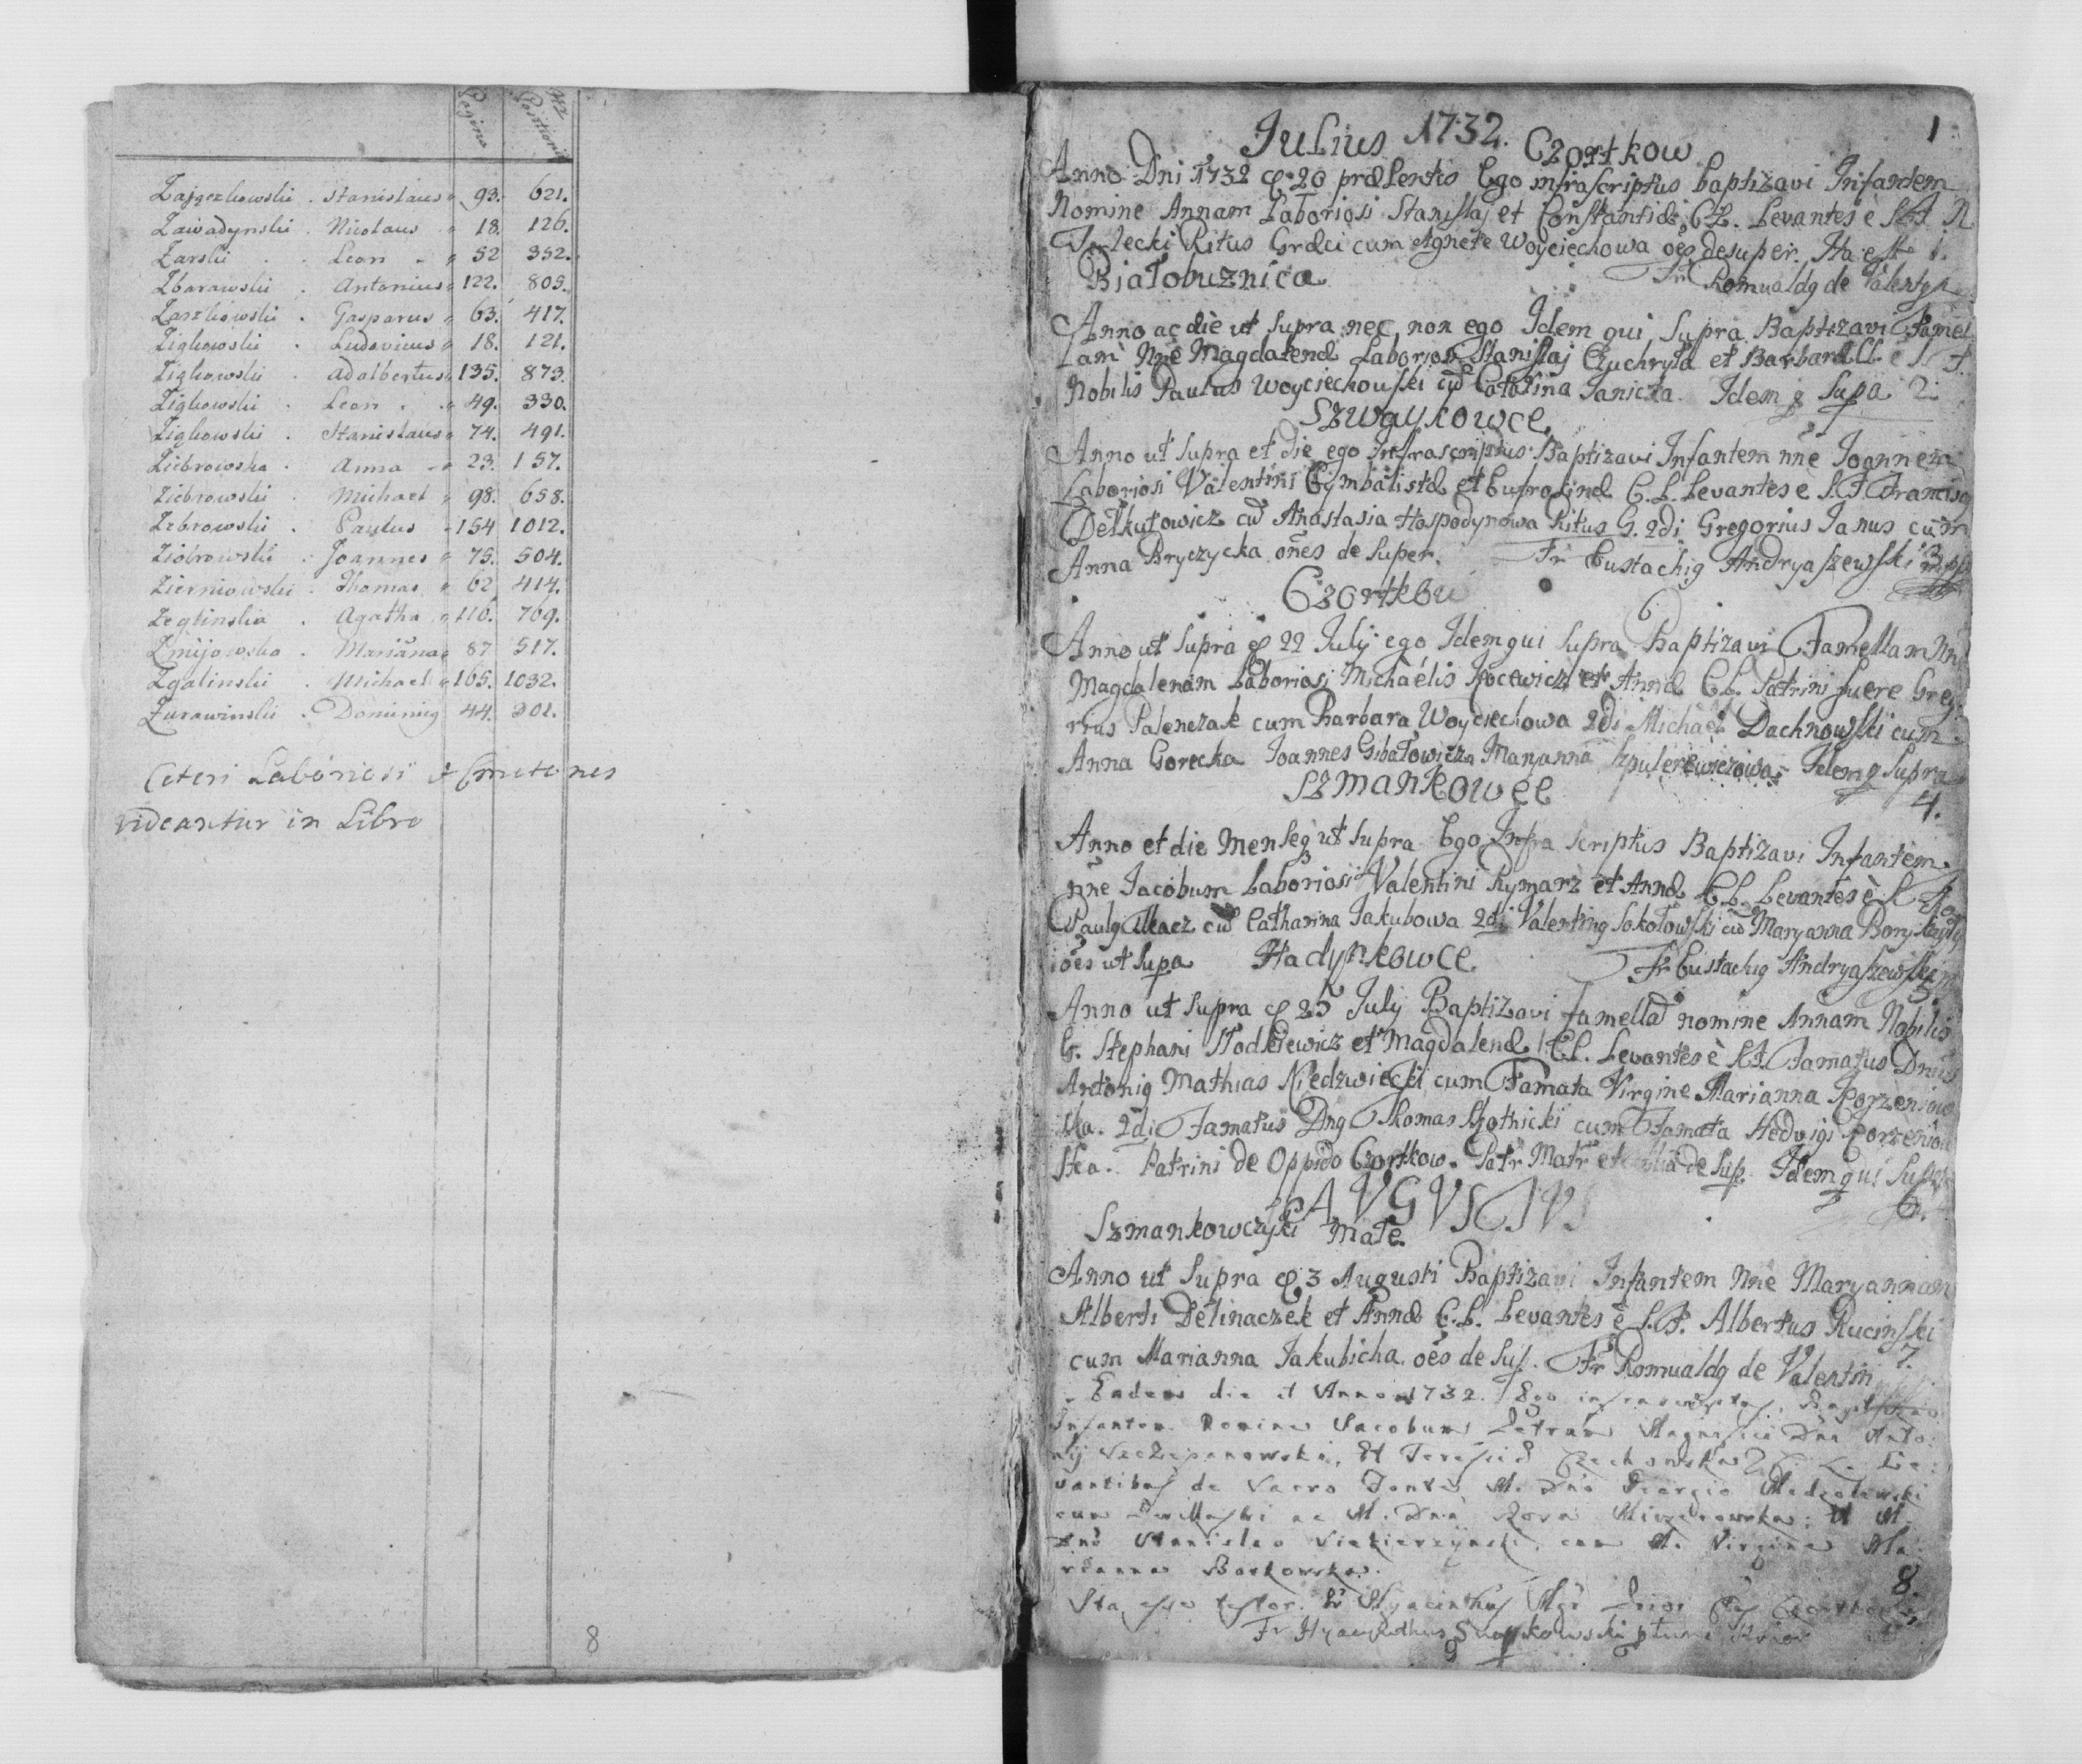 Pagina Nr Positionis
Zajączkowski . Stanislaus 93. 621.
Zawadynski . Nicolaus 18. 126.
Zarski . . Leon 52 352.
Zbarawski . Antonius 122. 805.
Zaszkowski . Gasparus 63. 417.
Zigkowski . Ludovicus 18. 121.
Zigkowski . Adalbertus 135. 873.
Zigkowski . Leon . 49. 330.
Zigkowski . Stanislaus 74. 491.
Ziebrowska . Anna 23. 157.
Ziebrowski . Michael 98. 658.
Zebrowski . Paulus 154 1012.
Ziobrowski . Joannes 75. 504.
Zierniowski . Thomas 62 414.
Zeglinska . Agatha 116. 769.
Żmijowska . Mariana 87 517.
Zgalinski . Michael 165. 1032.
Żurawinski . Dominicg 44. 301.
Ceteri Laboriosi et Cmetones
videantur in Libro
8
Julius 1732. Czortkow 1
Anno Dni 1732 20 præsentis Ego infrascriptus baptizavi Infantem
Nomine Annam Laboriosi Stanislaj et Constantiæ C.L. Levantes è S.F. N
Terlecki Ritus Græci cum Agnete Woyciechowa oēs desuper. Ita est 1.
Białobuznica Fr Romualdg de Valentyn
Anno ac die ut supra nec non ego Idem qui supra Baptizavi Famel
lam Nne Magdalenæ Laboriosi Stanislaj Czuchryla et Barbaræ LL è S F.
Nobilis Paulus Woyciechowski cū Catarina Janicka. Idem q supa 2.
Szwaykowce
Anno ut supra et die ego Infrascriptus Baptizavi Infantem nne Joannem
Laboriosi Valentini Cymbalistæ et Eufrosinæ C.L. Levantes è S.F. Franciscg
Delkutowicz cū Anastasia Hospodynowa Ritus G. 2di Gregorius Janus cum
Anna Bryczycka oñes de super. Fr Eustachig Andryaszewski 3
Czortkow
Anno ut supra 22 July ego Idem qui supra Baptizavi Famellam Nne
Magdalenam Laboriosi Michaëlis Kocewicz et Annæ C.L. Patrini fuere Grego
rius Palenczak cum Barbara Woyciechowa 2di Michael Dachnowski cum
Anna Gorecka Joannes Gibałowicz Maryanna Szpulerewiczowa Idem q supra
Szmankowce 4.
Anno et die Menseq ut supra Ego Infra scriptus Baptizavi Infantem
nne Jacobum Laboriosi Valentini Rymarz et Annæ C.L. Levantes è S F.
Paulg Tkacz cū Catharina Jakubowa 2di Valenting Sokołowski cū Maryanna
oēs ut supa Hadynkowce Fr Eustachig Andryaszewski 5.
Anno ut supra 25 July Baptizavi famellā nomine Annam Nobilis
G. Stephani Słodkiewicz et Magdalenæ C.L. Levantes è S.F. Famatus Dnus
Antonig Mathias Niedzwiecki cum Famata Virgine Marianna Korzeniow
ska. 2di Famatus Dng Thomas Szotnicki cum Famata Hedvigi Korzeniow
ska. Patrini de Oppido Czortkow. Patr Matr et de sup. Idem qui supra
AVGVSTVS 6.
Szmankowczyki Małe
Anno ut supra 3 Augusti Baptizavi Infantem Nne Maryannam
Alberti Delinaczek et Annæ C.L. Levantes è S.F. Albertus Rucinski
cum Marianna Jakubicha oēs de sup. Fr Romualdg de Valentin 7.
Eadem die et Anno 1732. Ego infrascriptus Baptizavi
Infantem Nomine Jacobum Petrum Magnifici Dni Anto
nij Szczepanowski, Et Teresiæ Czechowska C. L. Le
vantibus de Sacro Fonte M. Dno Georgio
cum ac M. Dna Rosa ; Et M.
Dno Stanislao cum M. Virgine Ma
rianna Borkowska.
Ita esse testor. Fr Hyacinthus Prior 8.
Fr Hyacinthus Prior
9